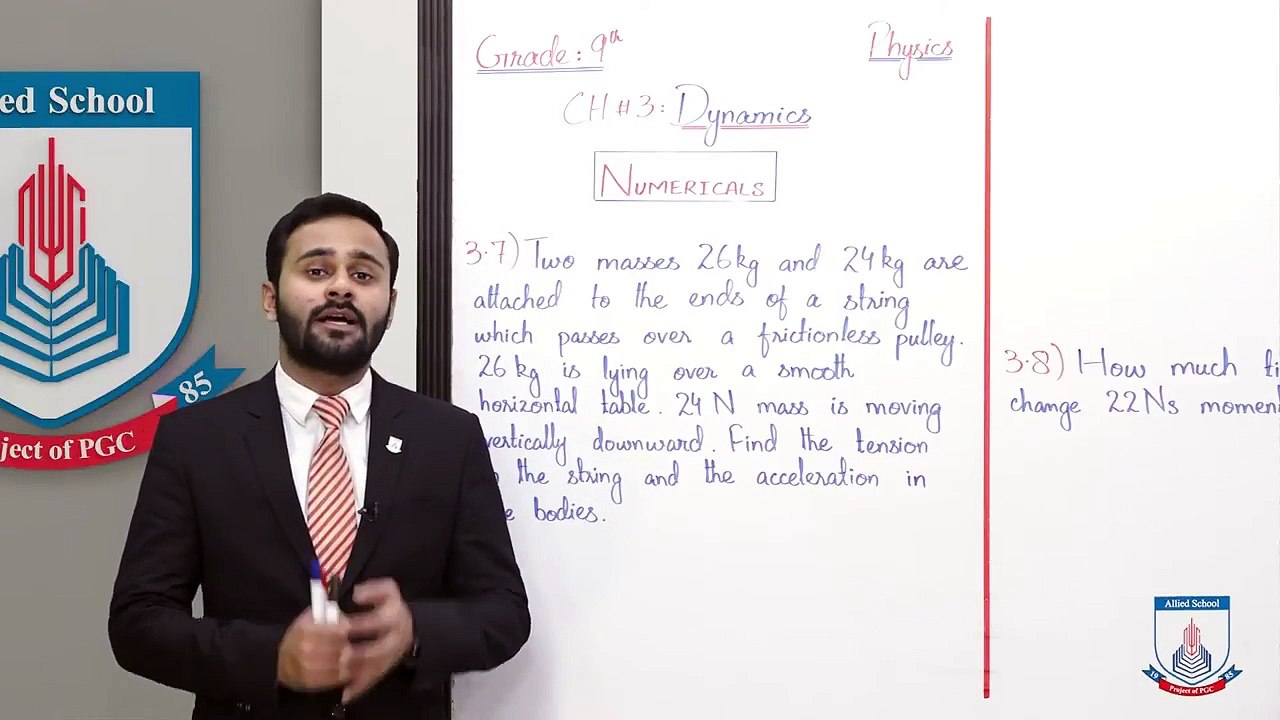 ied School
85
ject of PGC
Grade: 9th
Physics
CH # 3: Dynamics
NUMERICALS
3.7) Two masses 26kg and 24kg are
attached to the ends of a string
which passes over a frictionless pulley.
26 kg is lying over a smooth
horizontal table. 24 N mass is moving
vertically downward. Find the tension
the string and the acceleration in
e bodies.
3.8) How much ti
change 22Ns momen
Allied School
19 85
Project of PGC